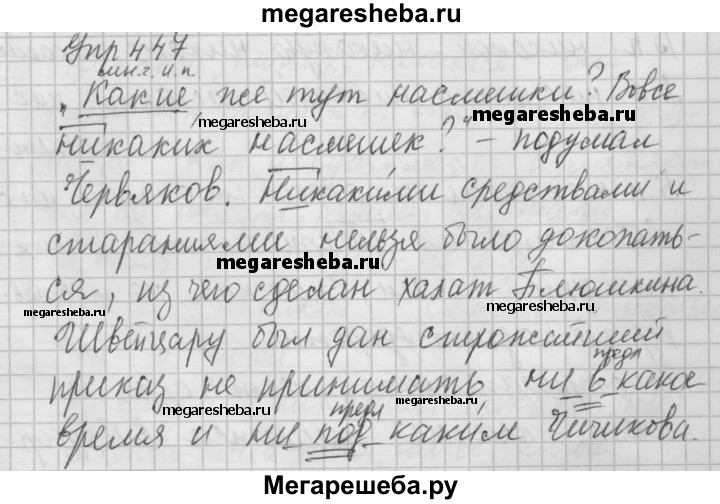 megaresheba.ru
Упр 447
мн.ч. и.п.
„Какие же тут насмешки? Вовсе
megaresheba.ru
megaresheba.ru
никаких насмешек?“ – подумал
Червяков. Никакими средствами и
стараниями нельзя было докопать-
megaresheba.ru
ся, из чего сделан халат Плюшкина.
megaresheba.ru
megaresheba.ru
Швейцару был дан строжайший
предл
приказ не принимать ни в какое
megaresheba.ru
предл
megaresheba.ru
время и ни под каким Чичикова.
Мегарешеба.ру